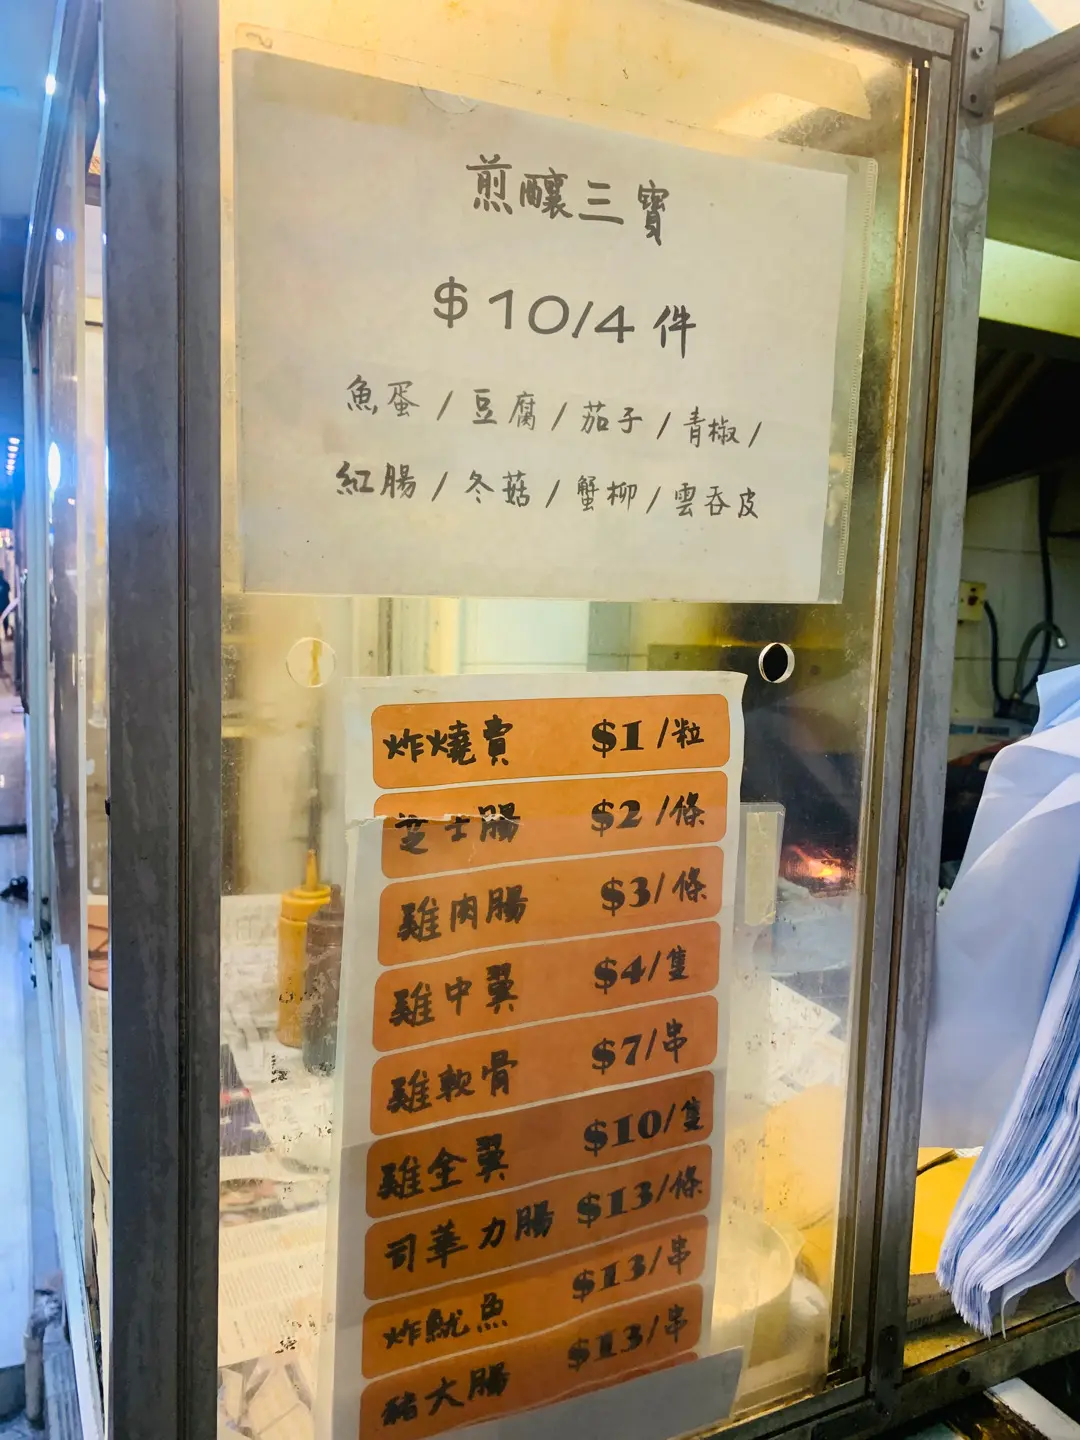 煎釀三寶
$10/4件
魚蛋/豆腐/茄子/青椒/
紅腸/冬菇/蟹柳/雲吞皮
炸燒賣 $1/粒
芝士腸 $2/條
雞肉腸 $3/條
雞中翼 $4/隻
雞軟骨 $7/串
雞全翼 $10/隻
司華力腸 $13/條
炸魷魚 $13/串
豬大腸 $13/串